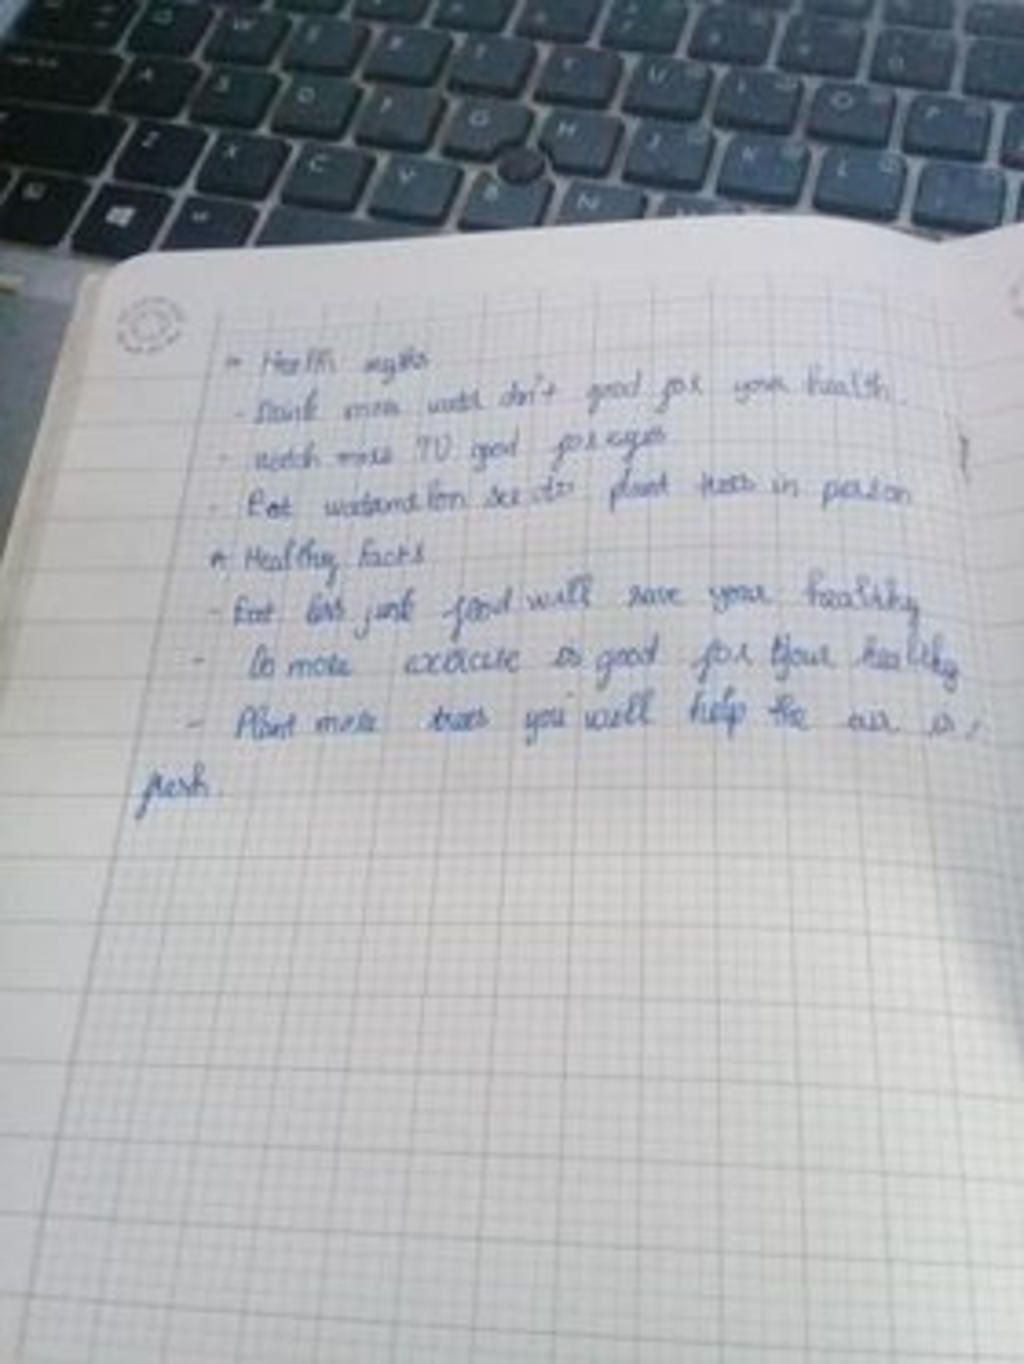 Q W E R T Y U I O P
A S D F G H J K L
Z X C V B N
* Health myths
- Drink more water don't good for your health.
- Watch more TV good for eyes
- Eat plant trees in person
* Healthy facts
- Eat less junk food will save your healthy
- Do more exercise is good for your healthy
- Plant more trees you will help the air is
fresh.